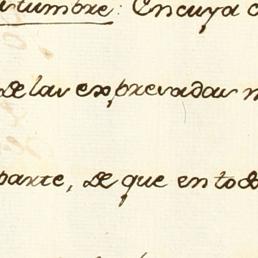 stumbre: En cuya c
de las expresadas n
parte, de que en tod